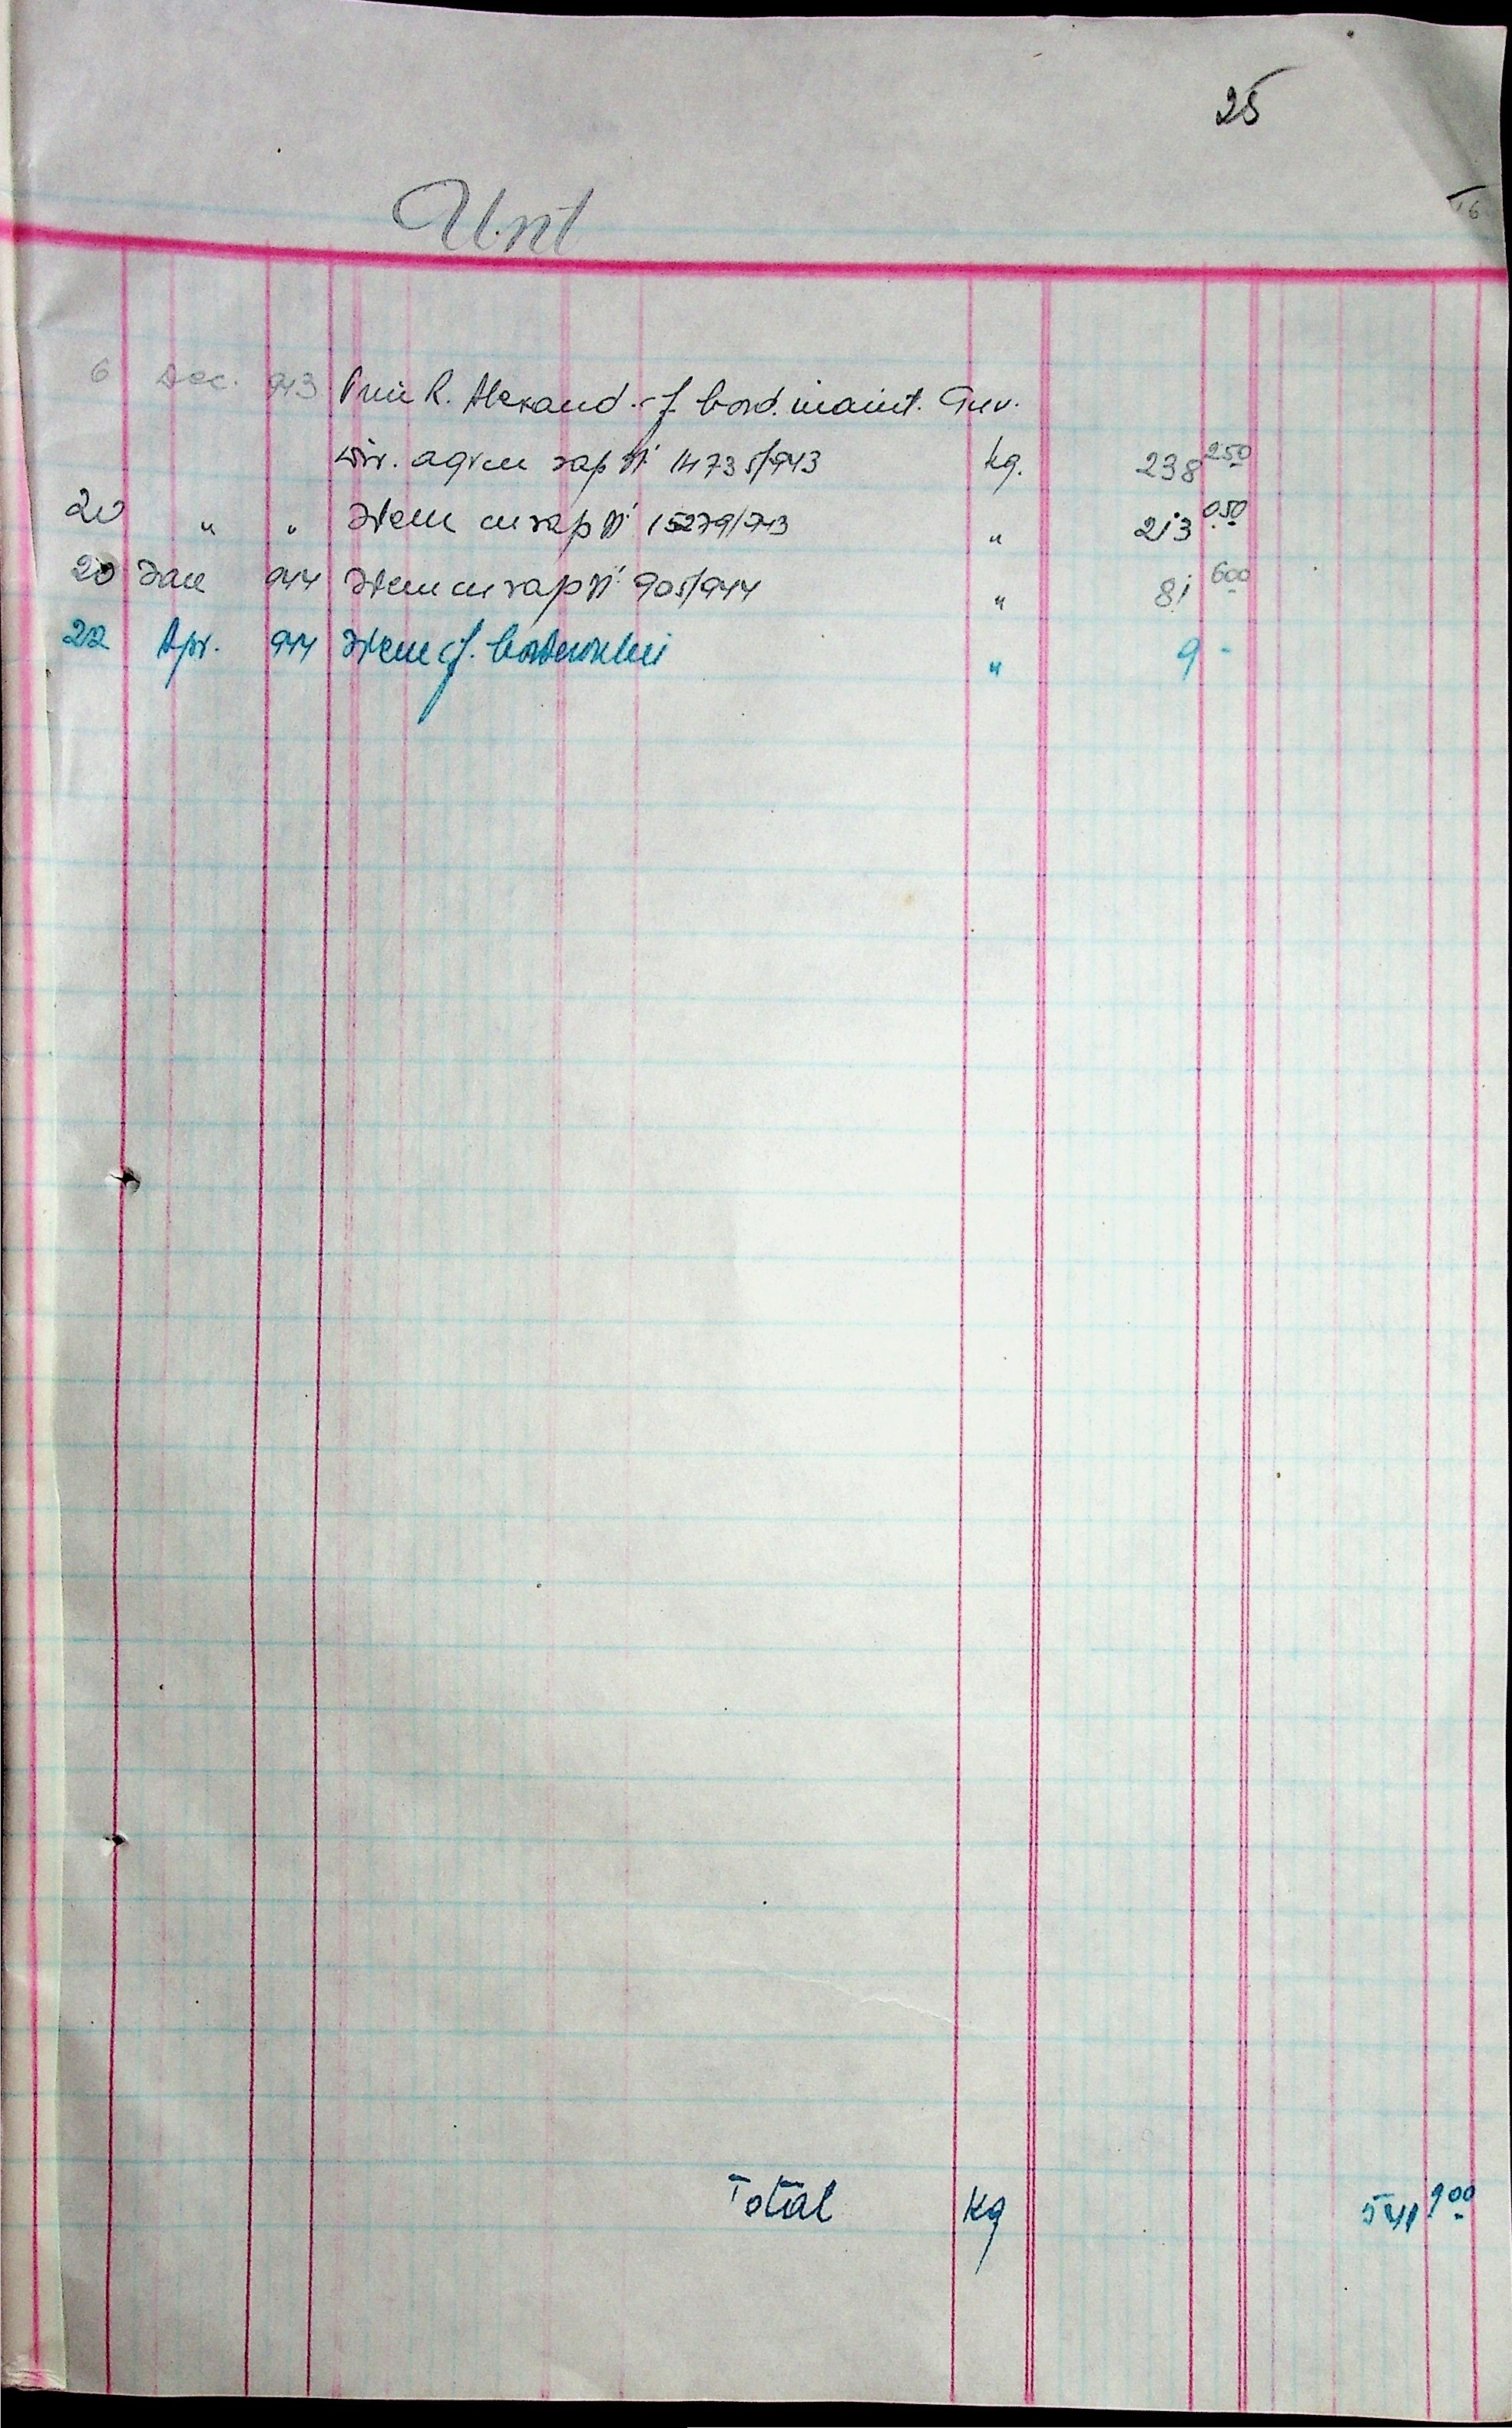 25
16
Unt
6 Dec. 943 Prin R. Alexand. cf bord. inaint. Guv.
Dir. agr cu rap Nº 14735/943 kg. 238 250
20 " " Idem cu rap Nº 15279/943 " 213 050
20 Ian 944 Idem cu rap Nº 905/944 " 81 600
22 Apr. 944 Idem cf. borderoului " 9 -
Total Kg 541 900